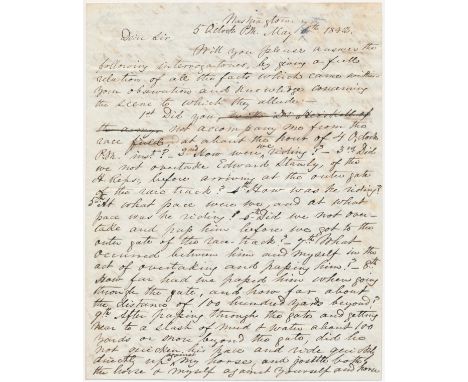 Washington
5 Oclock P.M. May 14th 1842
Dear Sir.
Will you please answer the
following interrogatories, by giving a full
relation of all the facts which came under
your observation and knowledge concerning
the scene to which they allude.—
1st Did you
not accompany me from the
race field at about the hour of 4 Oclock
P.M. 2nd How were we riding? — 3rd Did
we not overtake Edward Stanly, of the
H Reps, before arriving at the outer gate
of the race track? — 4th How was he riding?
5th At what pace were we, and at what
pace was he riding? 6th Did we not over-
take and pass him before we got to the
outer gate of the race track? — 7th What
occurred between him and myself in the
act of overtaking and passing him? — 8th
How far had we passed him when going
through the gate and how far about
the distance of 100 hundred yards beyond?
9th After passing through the gate and getting
near to a slash of mud & water about 100
yards or more beyond the gate, did he
not quicken his pace and ride quickly
directly up against my horse, and jostle both
the horse & myself against yourself and horse